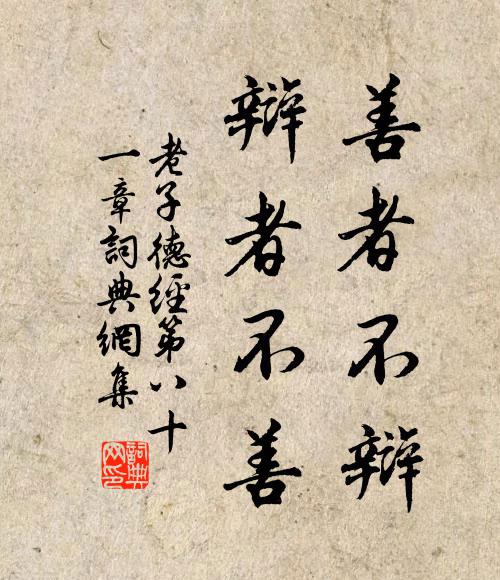 善者不辯
辯者不善
老子德經第八十
一章詞典網集
詞典
网印